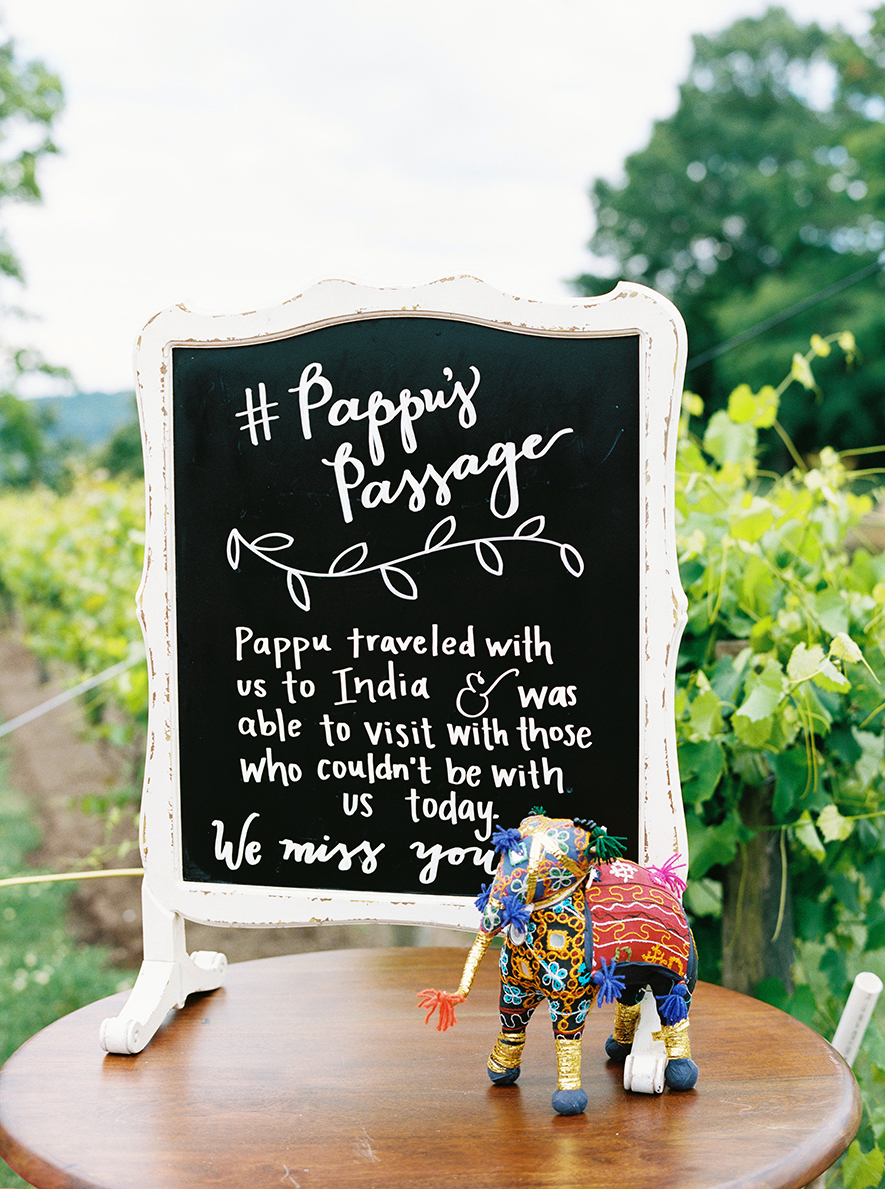 #Pappu's
Passage
Pappu traveled with
us to India & was
able to visit with those
who couldn't be with
us today.
We miss you